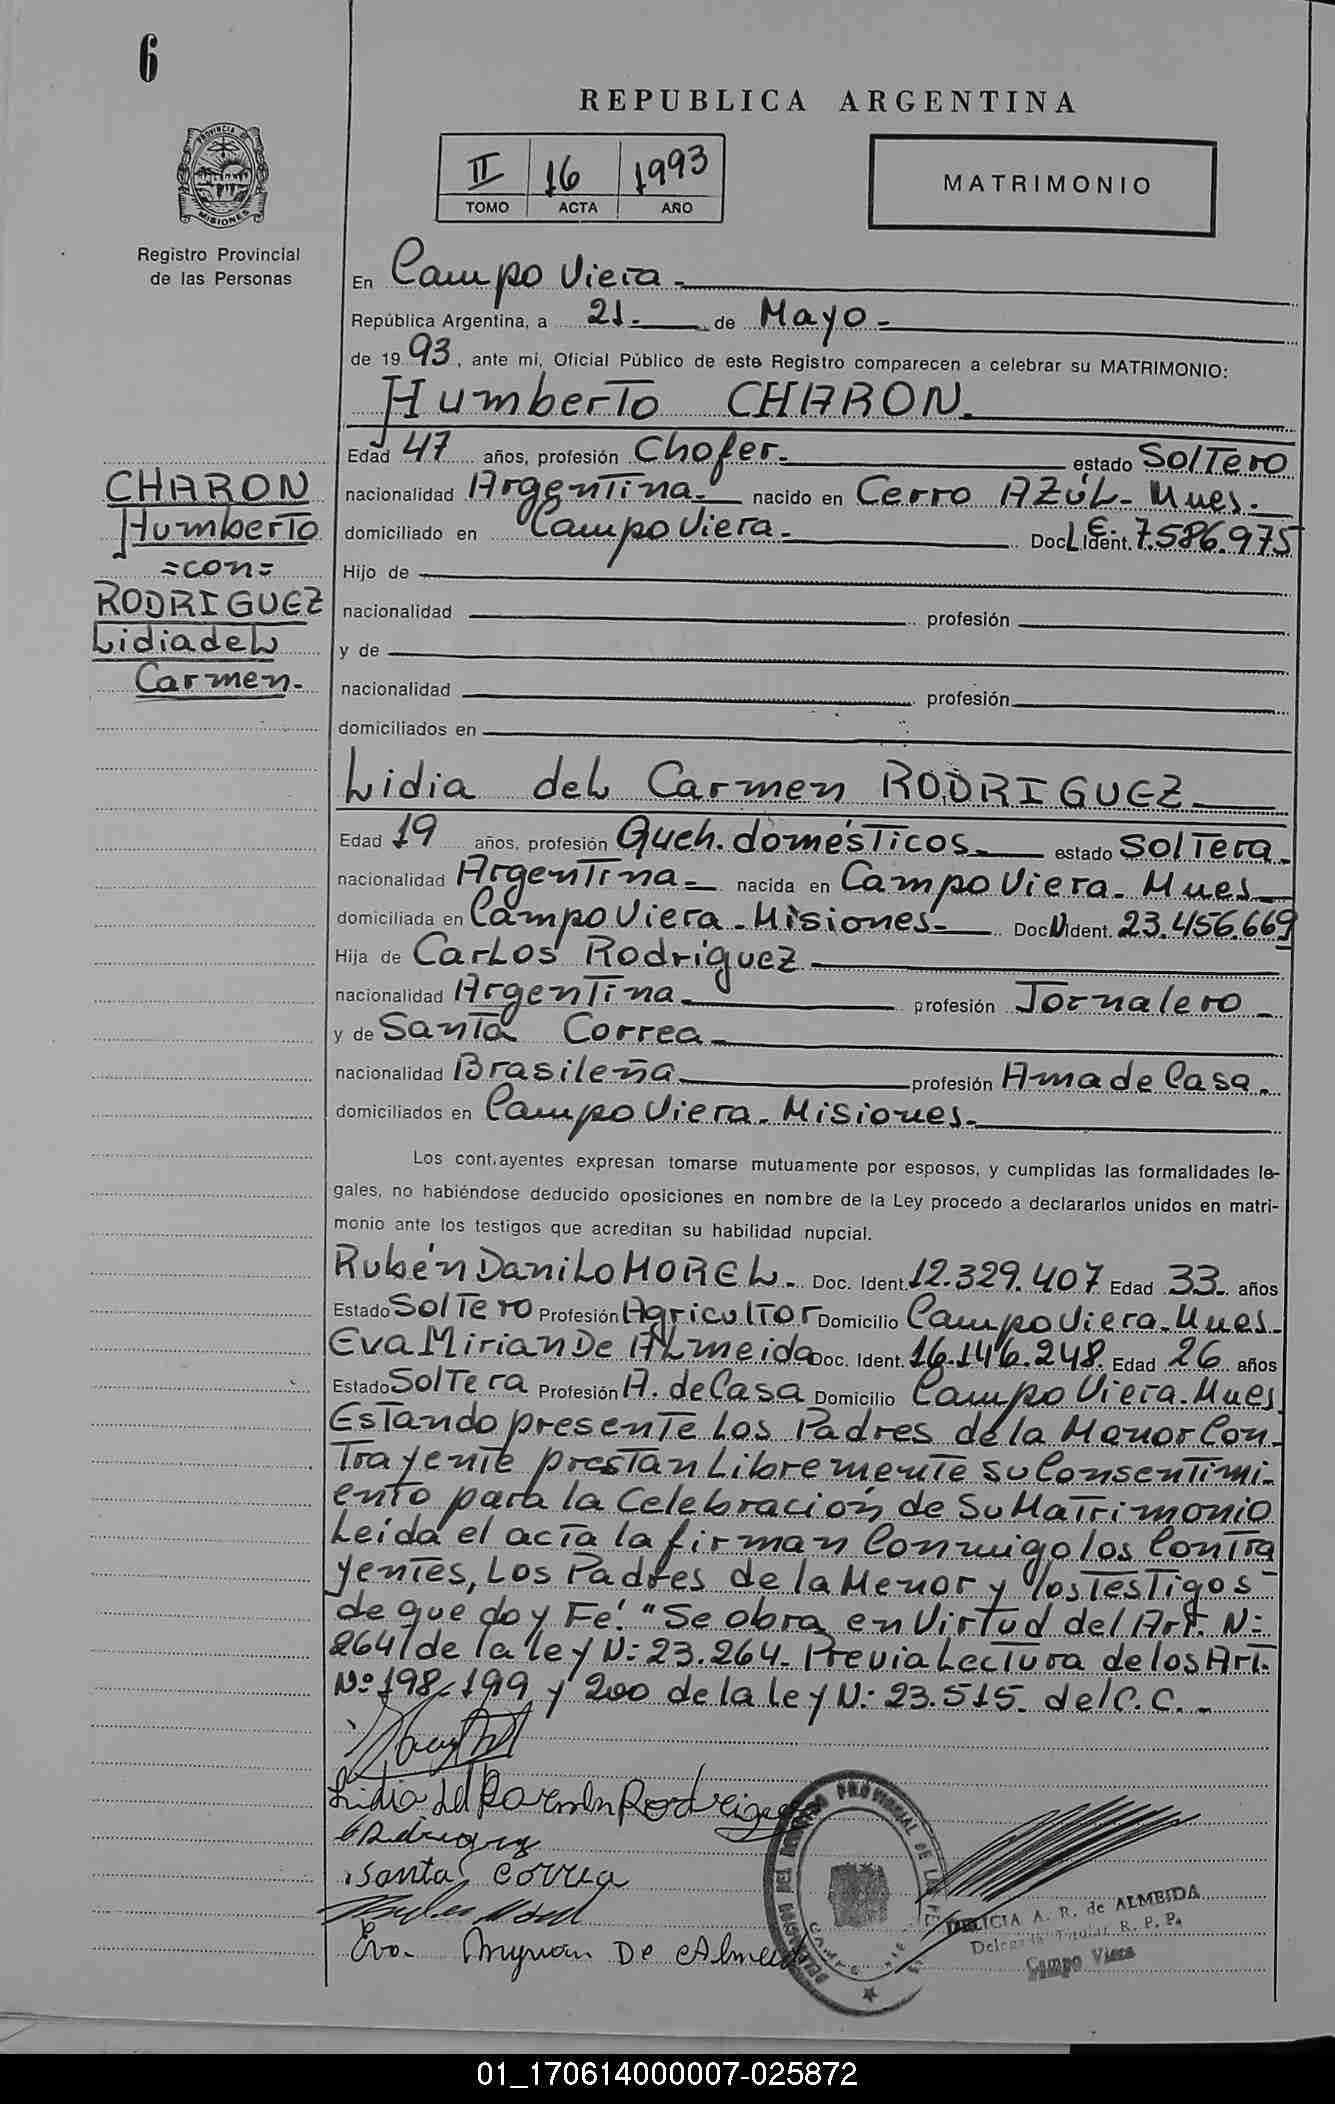 6
REPUBLICA ARGENTINA
II 16 1993
TOMO ACTA AÑO
MATRIMONIO
PROVINCIA DE
MISIONES
Registro Provincial
de las Personas
En Campo Viera.-
República Argentina, a 21.- de Mayo.-
de 1993, ante mi, Oficial Público de este Registro comparecen a celebrar su MATRIMONIO:
Humberto CHARON.
Edad 47 años, profesión Chofer.- estado Soltero
nacionalidad Argentina.- nacido en Cerro AZúL- Mnes.-
domiciliado en Campo Viera.- Doc. Ident. L.E. 7.586.975
Hijo de
nacionalidad profesión
y de
nacionalidad profesión
domiciliados en
CHARON
Humberto
=con=
RODRIGUEZ
Lidia deL
Carmen.-
Lidia deL Carmen RODRIGUEZ
Edad 19 años, profesión Queh. domésticos.- estado Soltera.-
nacionalidad Argentina.- nacida en Campo Viera. Mnes.-
domiciliada en Campo Viera. Misiones.- Doc. Ident. 23.456.669
Hija de CarLos Rodríguez
nacionalidad Argentina.- profesión Jornalero.-
y de Santa Correa.-
nacionalidad Brasileña.- profesión Ama de Casa.-
domiciliados en Campo Viera. Misiones.-
Los cont.ayentes expresan tomarse mutuamente por esposos, y cumplidas las formalidades le-
gales, no habiéndose deducido oposiciones en nombre de la Ley procedo a declararlos unidos en matri-
monio ante los testigos que acreditan su habilidad nupcial.
Rubén DaniLo MOREL.- Doc. Ident. 12.329.407 Edad 33 años
Estado Soltero Profesión Agricultor Domicilio Campo Viera. Mnes.
Eva Mirian De ALmeida Doc. Ident. 16.146.248. Edad 26 años
Estado Soltera Profesión A. de Casa Domicilio Campo Viera. Mnes.
Estando presente Los Padres de la Menor Con-
trayente prestan Libremente su Consentimi-
ento para la Celebración de Su Matrimonio
Leída el acta la firman Conmigo los Contra
yentes, Los Padres de la Menor y los Testigos
de que doy Fé. "Se obra en Virtud del Art. N:
264 de la ley N: 23.264. Previa Lectura de los Art.
Nº 198-199 y 200 de la ley N: 23.515. del C.C.-
Lidia del Carmen Rodriguez
Santa Correa
Eva Myrian De Almeida
DELICIA A. R. de ALMEIDA
Delegada Titular R. P. P.
Campo Viera
01_170614000007-025872